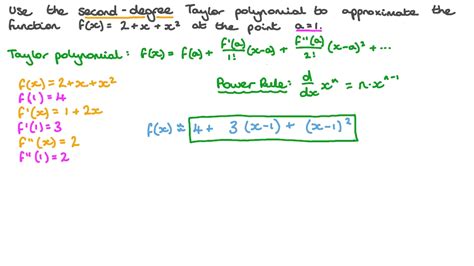 Use the second-degree Taylor polynomial to approximate the
function f(x) = 2 + x + x² at the point a = 1.
Taylor polynomial: f(x) = f(a) + f'(a)/1! (x-a) + f''(a)/2! (x-a)² + ...
f(x) = 2 + x + x²
f(1) = 4
f'(x) = 1 + 2x
f'(1) = 3
f''(x) = 2
f''(1) = 2
Power Rule: d/dx xⁿ = n·xⁿ⁻¹
f(x) ≈ 4 + 3 (x-1) + (x-1)²